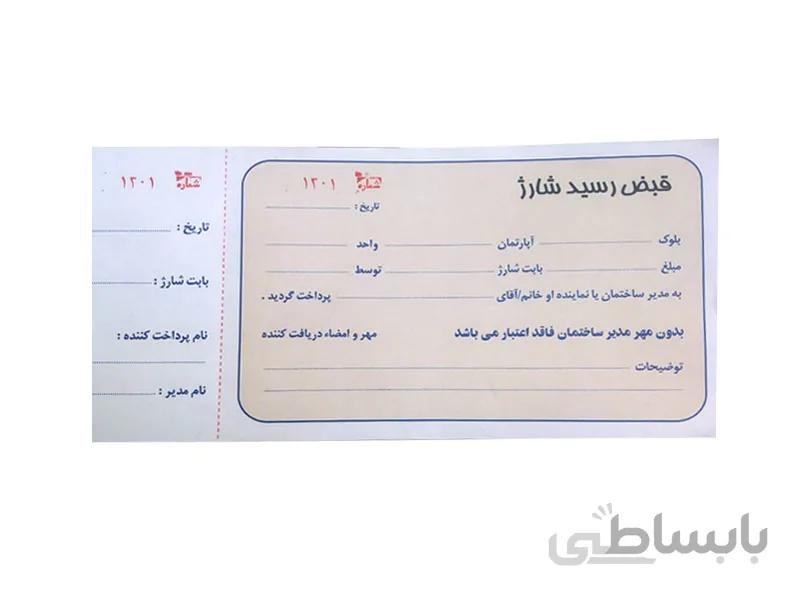 قبض رسید شارژ
شماره ۱۲۰۱
تاریخ :
بلوک آپارتمان واحد
مبلغ بابت شارژ توسط
به مدیر ساختمان یا نماینده او خانم/آقای پرداخت گردید .
بدون مهر مدیر ساختمان فاقد اعتبار می باشد مهر و امضاء دریافت کننده
توضیحات
شماره ۱۲۰۱
تاریخ :
بابت شارژ :
نام پرداخت کننده :
نام مدیر :
بابساطی